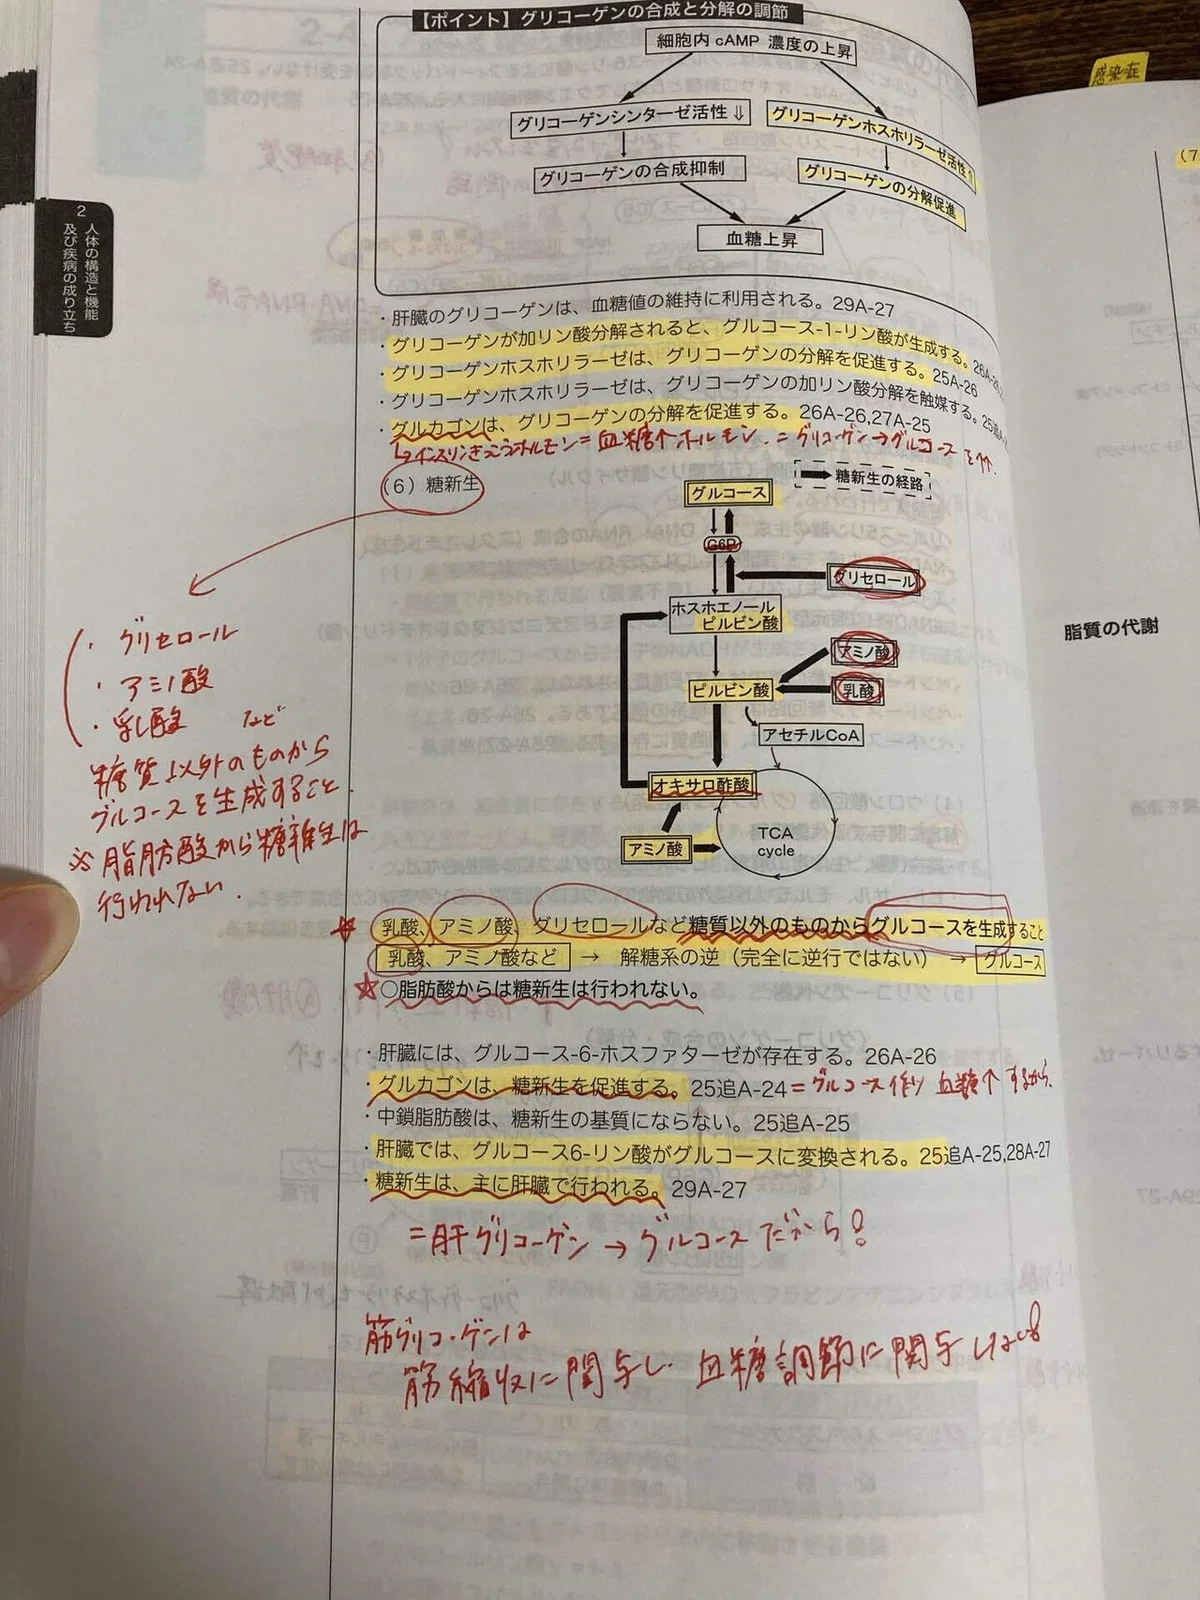 【ポイント】グリコーゲンの合成と分解の調節
細胞内 cAMP 濃度の上昇
グリコーゲンシンターゼ活性⇓
グリコーゲンホスホリラーゼ活性⇑
グリコーゲンの合成抑制
グリコーゲンの分解促進
血糖上昇
2 人体の構造と機能
及び疾病の成り立ち
感染症
(7
・肝臓のグリコーゲンは、血糖値の維持に利用される。29A-27
・グリコーゲンが加リン酸分解されると、グルコース-1-リン酸が生成する。26A-
・グリコーゲンホスホリラーゼは、グリコーゲンの分解を促進する。25A-26
・グリコーゲンホスホリラーゼは、グリコーゲンの加リン酸分解を触媒する。25追A-
・グルカゴンは、グリコーゲンの分解を促進する。26A-26,27A-25
ホルモン=血糖↑ホルモン.=グリコーゲン→グルコース
(6)糖新生
糖新生の経路
グルコース
G6P
グリセロール
ホスホエノール
ピルビン酸
アミノ酸
ピルビン酸
乳酸
アセチルCoA
オキサロ酢酸
アミノ酸
TCA
cycle
・グリセロール
・アミノ酸
・乳酸 など
糖質以外のものから
グルコースを生成すること.
※脂肪酸から糖新生は
行われない.
脂質の代謝
☆乳酸、アミノ酸、グリセロールなど糖質以外のものからグルコースを生成すること
乳酸、アミノ酸など → 解糖系の逆(完全に逆行ではない) → グルコース
☆○脂肪酸からは糖新生は行われない。
・肝臓には、グルコース-6-ホスファターゼが存在する。26A-26
・グルカゴンは、糖新生を促進する。25追A-24=グルコース作り 血糖↑するから.
・中鎖脂肪酸は、糖新生の基質にならない。25追A-25
・肝臓では、グルコース6-リン酸がグルコースに変換される。25追A-25,28A-27
・糖新生は、主に肝臓で行われる。29A-27
=肝グリコーゲン→グルコースだから!
筋グリコーゲンは
筋縮収に関与し 血糖調節に関与しない!